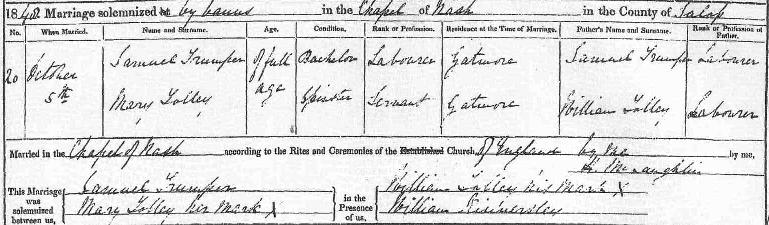 1848. Marriage solemnized at by banns in the Chapel of Nash in the County of Salop
No. When Married. Name and Surname. Age. Condition. Rank or Profession. Residence at the Time of Marriage. Father's Name and Surname. Rank or Profession of Father.
20 October 5th Samuel Trumper of full age Bachelor Labourer Gatmore Samuel Trumper Labourer
Mary Tolley Spinster Servant Gatmore William Tolley Labourer
Married in the Chapel of Nash according to the Rites and Ceremonies of the Established Church, of England by me by me,
H. McLaughlin
This Marriage was solemnized between us, Samuel Trumper
Mary Tolley her mark X
in the Presence of us, William Tolley his mark X
William